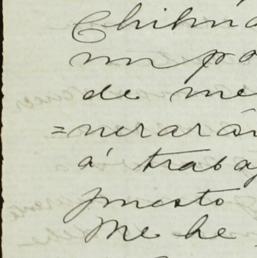 Chihua
un po
de me
=nerará
á trabaj
puesto
Me he